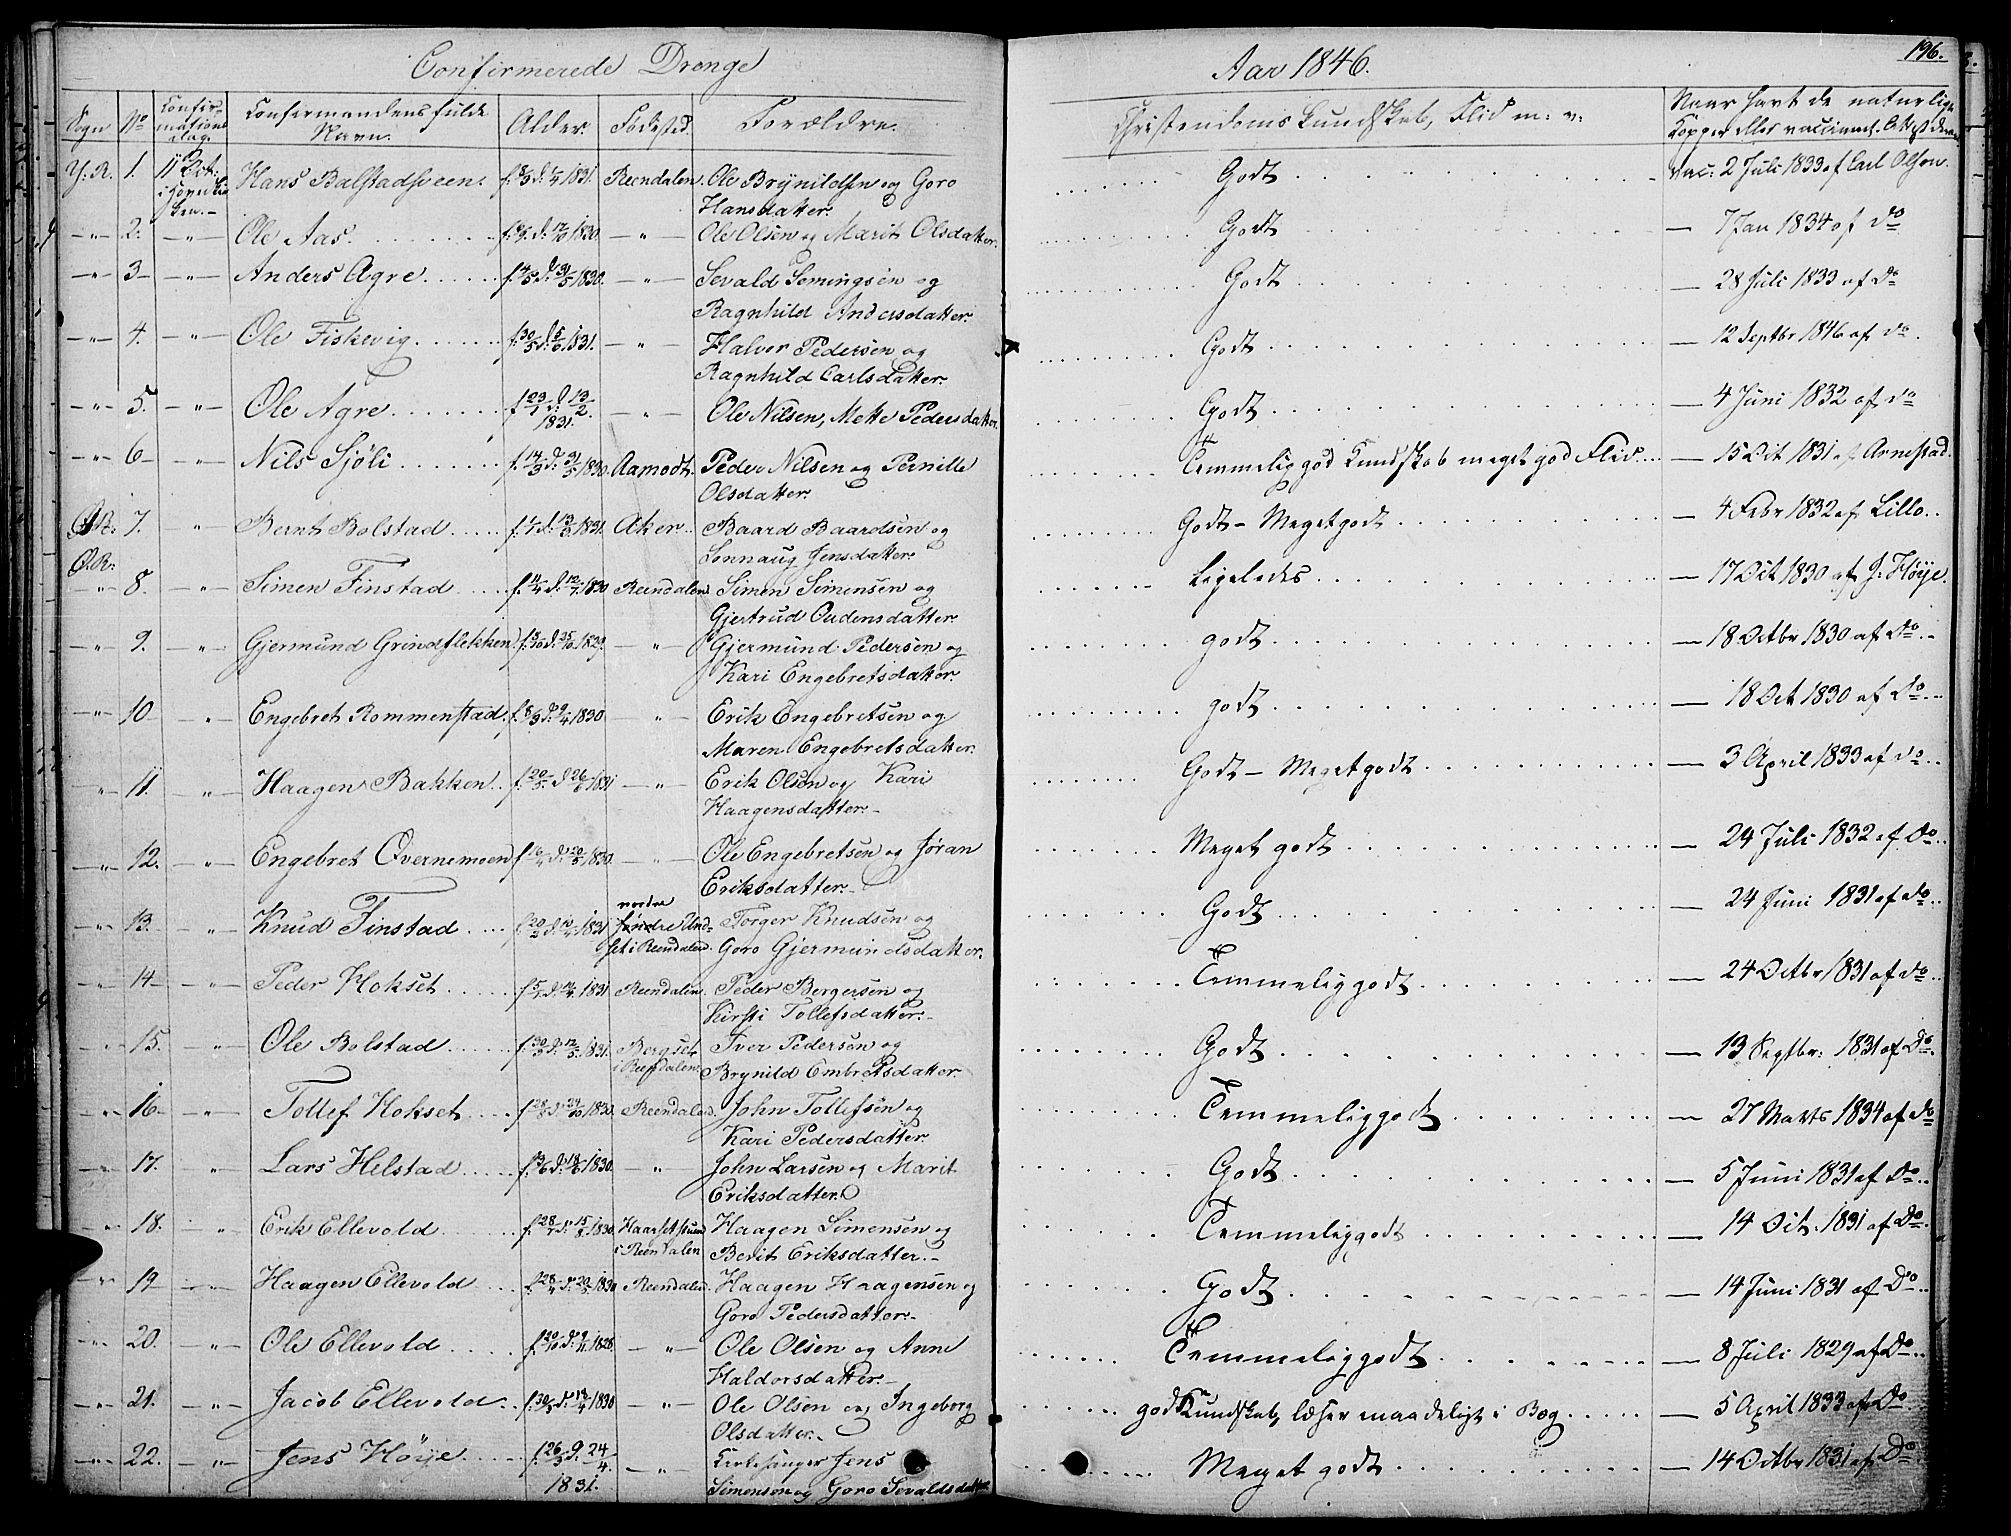 Confirmerede Drenge
Aar 1846.
196.
Sogn No Confirmations dag. Confirmandens fulde Navn. Alder. Fødested. Forældre. Christendoms Kundskab, Flid m: v: Naar havt de naturlige Kopper eller vaccineret. Attest derom
Y. R. 1. 11 Oct: i Hans Balstadsveen. 1831. Reendalen. Ole Brynildsen og Goro Godt vac: 2 Juli 1833 af Carl Olsen.
Hansdatter.
-"- 2. -"- Ole Aas. 1830. -"- Ole Olsen og Marit Olsdatter. Godt — 7 Jan 1834 af do
-"- 3 -"- Anders Agre 1830. -"- Sevald Semingsen og Godt — 28 Juli 1833 af do
Ragnhild Andersdatter.
-"- 4. -"- Ole Fiskevig. f. 30/5 1831. -"- Halvor Pedersen og Godt — 12 Septbr 1846 af do.
Ragnhild Carlsdatter.
-"- 5. -"- Ole Agre. f 23/1 d: 13/2. 1831. -"- Ole Nilsen, Mette Pedersdatter Godt. — 4 Juni 1832 af do
-"- 6 -"- Nils Sjöli 1830. Aamodt. Peder Nilsen og Pernille Temmelig god Kundskab meget god Flid. — 15 Oct 1831 af Arnestad.
Olsdatter.
7. " Bernt Bolstad 1831. Aker. Baard Baardsen og Godt - Meget godt — 4 Febr 1832 af Lillo.
Sønnaug Jensdatter.
Ø. R: -"- 8. -"- Simen Finstad f. 11/4 d: 12/4 1830 Reendalen Simen Simensen og Ligeledes — 17 Oct 1830 af J: Höye.
Gjertrud Oudensdatter.
-"- 9. -"- Gjermund Grindflekken 1829. -"- Gjermund Pedersen og godt — 18 Octbr 1830 af do.
Kari Engebretsdatter.
-"- 10 -"- Engebret Rommenstad. 1830 " Erik Engebretsen og godt — 18 Oct 1830 af do
Maren Engebretsdatter.
-"- 11. " Haagen Bakken. 1831 -"- Erik Olsen og Kari Godt - Meget godt — 3 April 1833 af do
Haagensdatter.
-"- 12. -"- Engebret Øvernemoen 1830. -"- Ole Engebretsen og Jøran Meget godt — 24 Juli 1832 af do
Eriksdatter.
-"- 13. " Knud Finstad 1831 nordre søndre Und- Torger Knudsen og Godt — 24 Juni 1831 af do
set i Reendalen. Goro Gjermundsdatter.
-"- 14 -"- Peder Hokset 1831 Reendalen. Peder Bergersen og Temmelig godt — 24 Octbr 1831 af do
Kirsti Tollefsdatter.
-"- 15. -"- Ole Bolstad f. 30/3 d: 12/5. 1831. Bergset Iver Pedersen og Godt — 13 Septbr: 1831 af do
i Reendalen. Brynild Embretsdatter.
-"- 16. -"- Tollef Hokset 1830. Reendalen. John Tollefsen og Temmelig godt — 27 Marts 1834 af do
Kari Pedersdatter
-"- 17. " Lars Helstad 1830. -"- John Larsen og Marit Godt — 5 Juni 1831 af do
Eriksdatter.
-"- 18. " Erik Ellevold 1830. Haagen Simensen og Temmelig godt — 14 Oct. 1831 af do
i Reendalen Berit Eriksdatter.
-"- 19 -"- Haagen Ellevold f. 28/4 d: 20/5. 1830 Reendalen. Haagen Haagensen og Godt — 14 Juni 1831 af do
Goro Pedersdatter.
-"- 20. -"- Ole Ellevold 1828. -"- Ole Olsen og Anne Temmelig godt — 8 Juli 1829 af do
Haldorsdatter.
-"- 21. -"- Jacob Ellevold 1830 -"- Ole Olsen og Ingeborg god Kundskab, læser maadeligt i Bog — 5 April 1833 af do
Olsdatter.
-"- 22. -"- Jens Höye f. 26/3 d. 24/4. 1831. -"- Kirkesanger Jens Meget godt — 14 Octbr 1831 af do
Simensen og Goro Sevaldsdatter